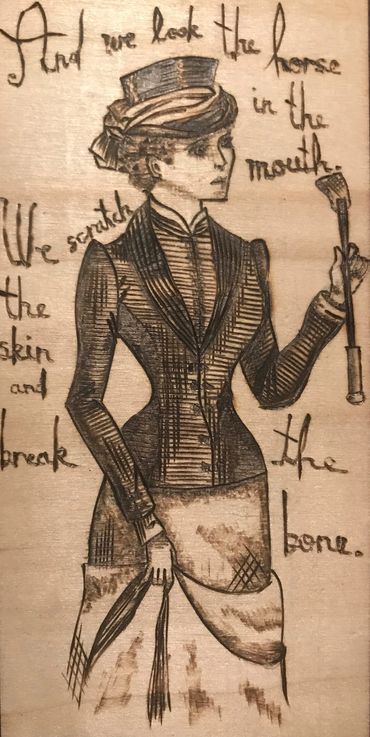 And we look the horse
in the
mouth.
We scratch
the
skin
and
break the
bone.